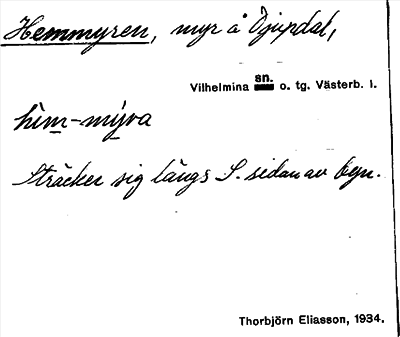 Hemmyren, myr å Djupdal,
Vilhelmina sn. o. tg. Västerb. l.
hèm-mýra
Sträcker sig längs S. sidan av byn.
Thorbjörn Eliasson, 1934.